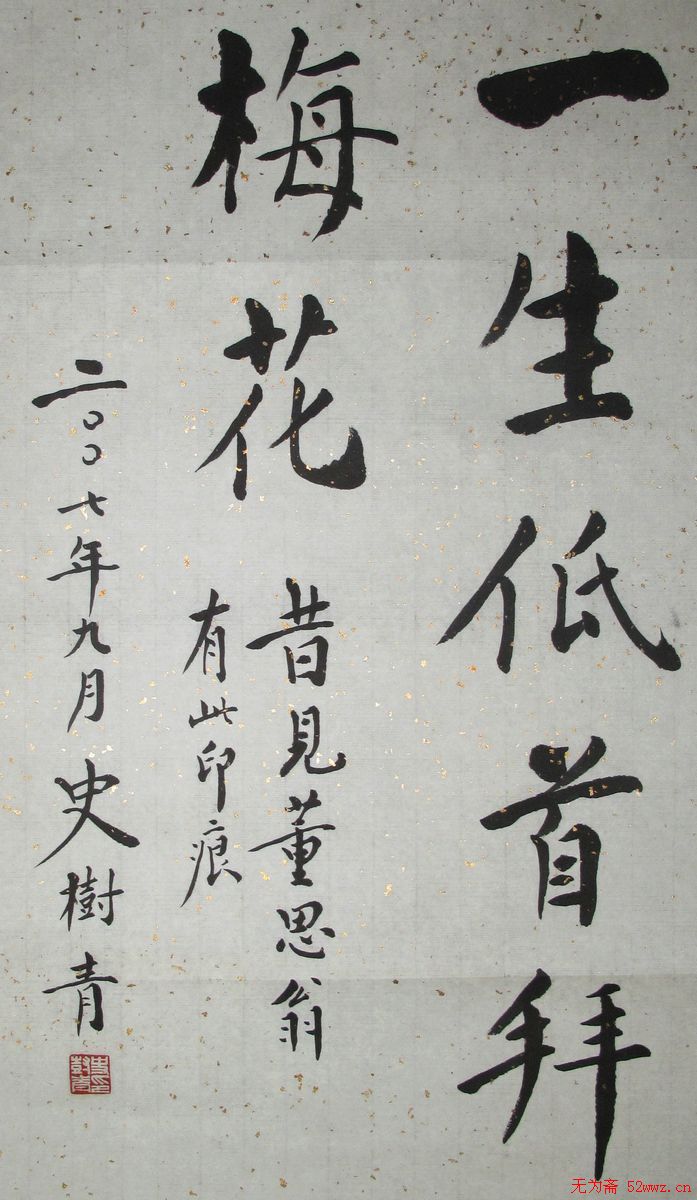 一生低首拜
梅花
昔見董思翁
有此印痕
二〇〇七年九月 史樹青
无为斋 52wwz.cn